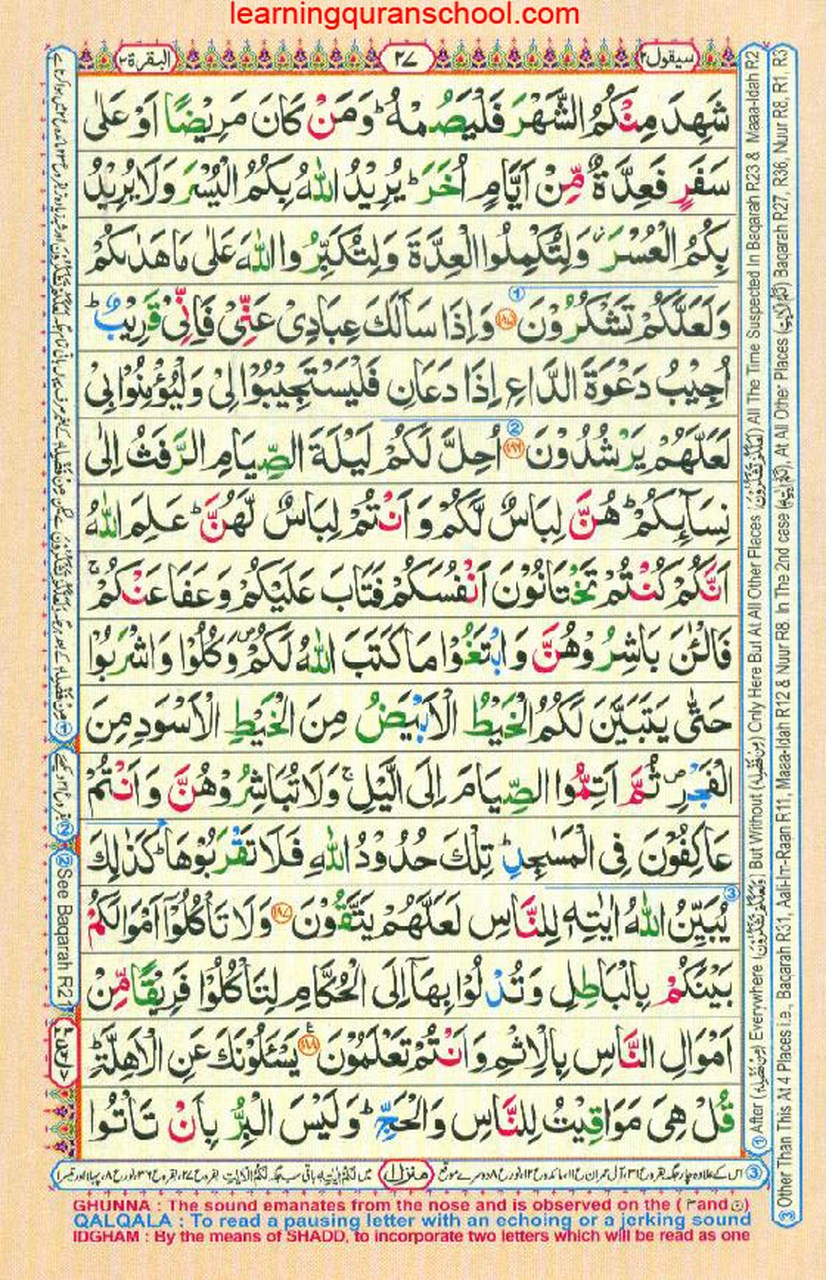 learningquranschool.com
سيقول ٢
٢٧
البقرة ٢
شَهِدَ مِنۡكُمُ الشَّهۡرَ فَلۡيَصُمۡهُ ؕ وَمَنۡ كَانَ مَرِيۡضًا اَوۡ عَلٰى
سَفَرٍ فَعِدَّةٌ مِّنۡ اَيَّامٍ اُخَرَ ؕ يُرِيۡدُ اللّٰهُ بِکُمُ الۡيُسۡرَ وَلَا يُرِيۡدُ
بِکُمُ الۡعُسۡرَ ۫ وَلِتُکۡمِلُوا الۡعِدَّةَ وَلِتُکَبِّرُوا اللّٰهَ عَلٰى مَا هَدٰٮكُمۡ
وَلَعَلَّکُمۡ تَشۡكُرُوۡنَ ﴿۱۸۵﴾ وَاِذَا سَاَلَـكَ عِبَادِىۡ عَنِّىۡ فَاِنِّىۡ قَرِيۡبٌؕ
اُجِيۡبُ دَعۡوَةَ الدَّاعِ اِذَا دَعَانِ فَلۡيَسۡتَجِيۡبُوۡا لِىۡ وَلۡيُؤۡمِنُوۡا بِىۡ
لَعَلَّهُمۡ يَرۡشُدُوۡنَ ﴿۱۸۶﴾ اُحِلَّ لَـکُمۡ لَيۡلَةَ الصِّيَامِ الرَّفَثُ اِلٰى
نِسَآٮِٕكُمۡؕ هُنَّ لِبَاسٌ لَّـكُمۡ وَاَنۡـتُمۡ لِبَاسٌ لَّهُنَّ ؕ عَلِمَ اللّٰهُ
اَنَّکُمۡ كُنۡتُمۡ تَخۡتَانُوۡنَ اَنۡفُسَکُمۡ فَتَابَ عَلَيۡكُمۡ وَعَفَا عَنۡكُمۡۚ
فَالۡـــٰٔنَ بَاشِرُوۡهُنَّ وَابۡتَغُوۡا مَا کَتَبَ اللّٰهُ لَـكُمۡ ص وَكُلُوۡا وَاشۡرَبُوۡا
حَتّٰى يَتَبَيَّنَ لَـكُمُ الۡخَـيۡطُ الۡاَبۡيَضُ مِنَ الۡخَـيۡطِ الۡاَسۡوَدِ مِنَ
الۡفَجۡرِ ص ثُمَّ اَتِمُّوا الصِّيَامَ اِلَى الَّيۡلِ ۚ وَلَا تُبَاشِرُوۡهُنَّ وَاَنۡـتُمۡ
عٰكِفُوۡنَ فِى الۡمَسٰجِدِ ؕ تِلۡكَ حُدُوۡدُ اللّٰهِ فَلَا تَقۡرَبُوۡهَا ؕ كَذٰلِكَ
يُبَيِّنُ اللّٰهُ اٰيٰتِهٖ لِلنَّاسِ لَعَلَّهُمۡ يَتَّقُوۡنَ ﴿۱۸۷﴾ وَلَا تَاۡكُلُوۡٓا اَمۡوَالَـكُمۡ
بَيۡنَكُمۡ بِالۡبَاطِلِ وَتُدۡلُوۡا بِهَآ اِلَى الۡحُـکَّامِ لِتَاۡکُلُوۡا فَرِيۡقًا مِّنۡ
اَمۡوَالِ النَّاسِ بِالۡاِثۡمِ وَاَنۡـتُمۡ تَعۡلَمُوۡنَ ﴿۱۸۸﴾ يَسۡـــَٔلُوۡنَكَ عَنِ الۡاَهِلَّةِ ؕ
قُلۡ هِىَ مَوَاقِيۡتُ لِلنَّاسِ وَالۡحَجِّ ؕ وَلَيۡسَ الۡبِرُّ بِاَنۡ تَاۡتُوا
① After (مِنْ فَضْلِهٖ) Everywhere (وَلَعَلَّكُمْ تَشْكُرُوْنَ) But Without (مِنْ فَضْلِهٖ) Only Here But At All Other Places (لَعَلَّكُمْ تَشْكُرُوْنَ) All The Time Suspected In Beqarah R23 & Maaa-Idah R2
③ Other Than This At 4 Places i.e., Baqarah R31, Aali-Im-Raan R11, Maaa-Idah R12 & Nuur R8. In The 2nd case, At All Other Places Baqarah R27, R36, Nuur R8, R1, R3
② See Baqarah R21
منزل ١
GHUNNA : The sound emanates from the nose and is observed on the ( م and ن )
QALQALA : To read a pausing letter with an echoing or a jerking sound
IDGHAM : By the means of SHADD, to incorporate two letters which will be read as one